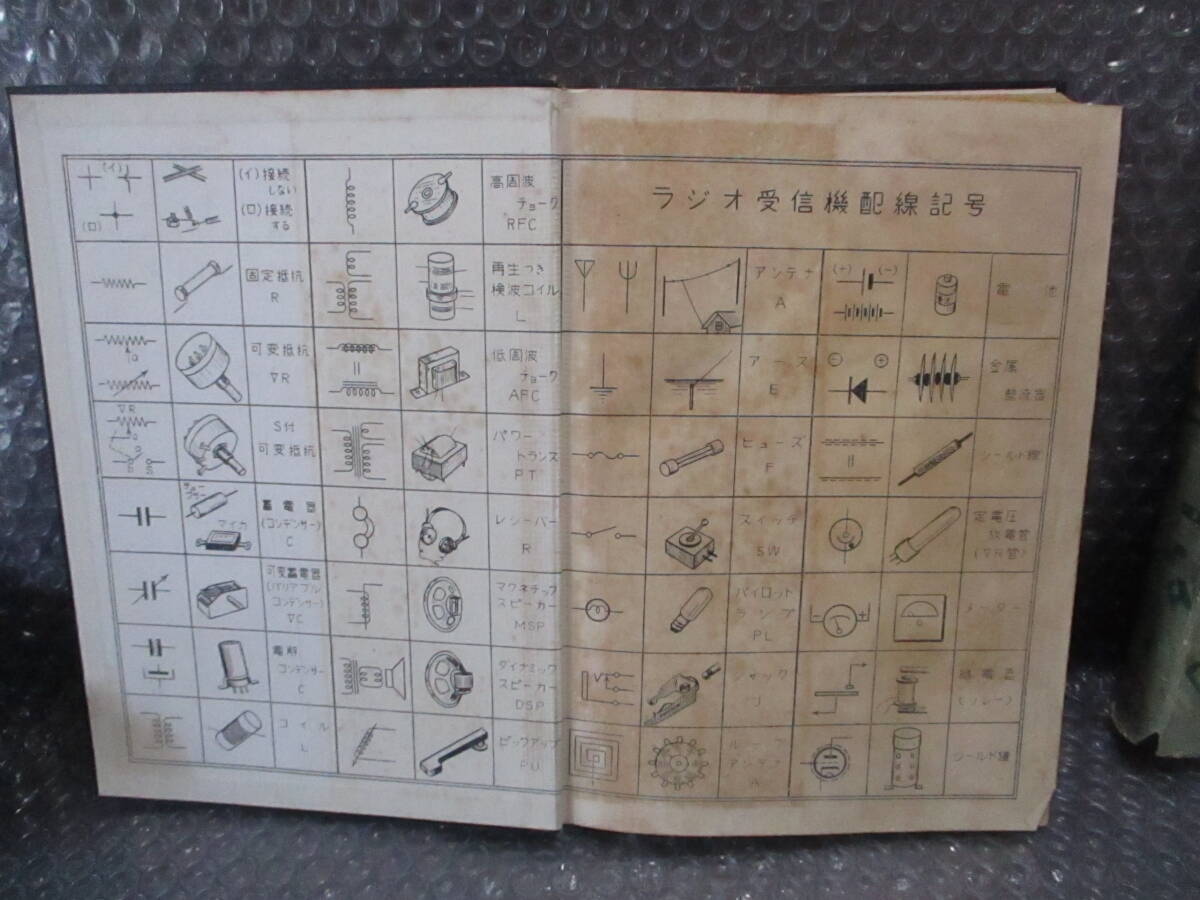 ラジオ受信機配線記号
(イ)
(ロ)
(イ)接続
しない
(ロ)接続
する
固定抵抗
R
a
可変抵抗
VR
VR
a
S付
可変抵抗
チューブラー
マイカ
蓄電器
(コンデンサー)
C
可変蓄電器
(バリアブル
コンデンサー)
VC
電解
コンデンサー
C
コイル
L
高周波
チョーク
RFC
再生つき
検波コイル
L
低周波
チョーク
AFC
パワー
トランス
PT
レシーバー
R
マグネチック
スピーカー
MSP
ダイナミック
スピーカー
DSP
ピックアップ
PU
アンテナ
A
アース
E
ヒューズ
F
スイッチ
SW
パイロット
ランプ
PL
ジャック
J
ループ
アンテナ
(+) (-)
電池
⊖ ⊕
金属
整流器
シールド線
定電圧
放電管
(VR管)
- +
メーター
継電器
(リレー)
シールド罐